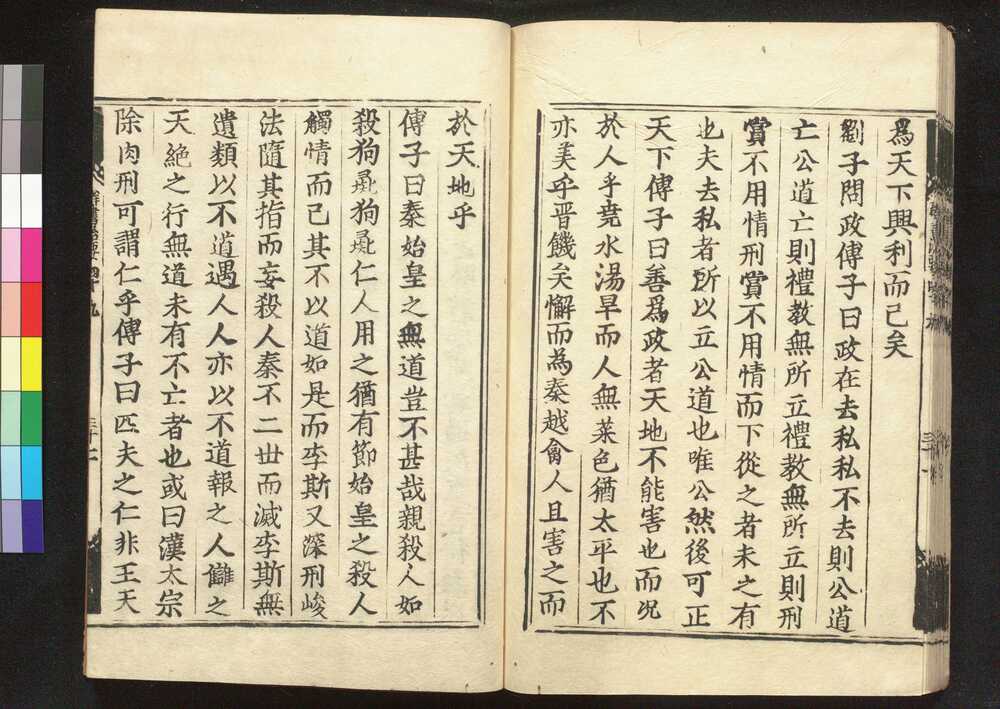 爲天下興利而已矣
劉子問政傅子曰政在去私私不去則公道
亡公道亡則禮教無所立禮教無所立則刑
賞不用情刑賞不用情而下從之者未之有
也夫去私者所以立公道也唯公然後可正
天下傅子曰善爲政者天地不能害也而况
於人乎堯水湯旱而人無菜色猶太平也不
亦美乎晋饑矣懈而為秦越禽人且害之而
於天地乎
傅子曰秦始皇之無道豈不甚哉視殺人如
殺狗彘狗彘仁人用之猶有節始皇之殺人
觸情而已其不以道如是而李斯又深刑峻
法隨其指而妄殺人秦不二世而滅李斯無
遺類以不道遇人人亦以不道報之人讎之
天絶之行無道未有不亡者也或曰漢太宗
除肉刑可謂仁乎傅子曰匹夫之仁非王天
群書治要四十九